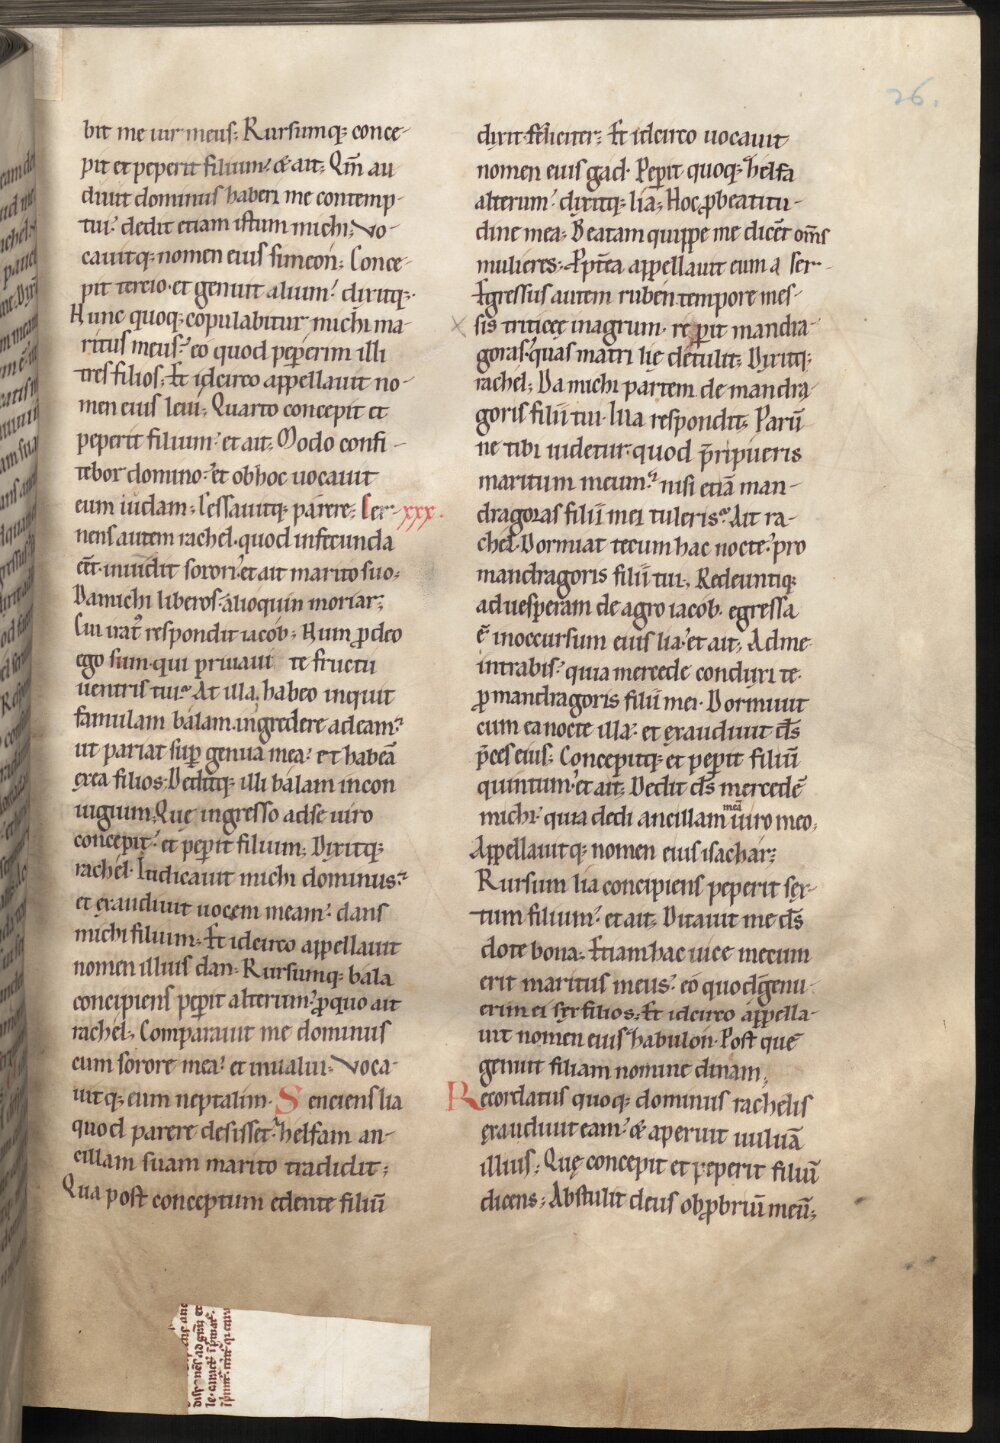 26.
bit me uir meus; Rursumq; conce-
pit et peperit filium; & ait; Qm̄ au
diuit dominus haberi me contemp-
tui; dedit etiam istum michi; Vo-
cauitq; nomen eius simeon; Conce-
pit tercio. et genuit alium; dixitq;
Nunc quoq; copulabitur michi ma-
ritus meus; eo quod peperim illi
tres filios; Et idcirco appellauit no-
men eius leui; Quarto concepit et
peperit filium; et ait; Modo confi-
tebor domino; et ob hoc uocauit
eum iudam; Cessauitq; parere; Cer- xxx.
nens autem rachel. quod infecunda
eēt. inuidit sorori; et ait marito suo;
Da michi liberos. alioquin moriar;
Cui irat᷒ respondit iacob; Num p̱ deo
ego sum. qui priuaui te fructu
uentris tui; At illa, habeo inquit
famulam balam. ingredere ad eam;
ut pariat sup̱ genua mea; et habeā
ex ea filios. Deditq; illi balam in con
iugium; Que ingresso ad se uiro
concepit; et pep̱it filium; Dixitq;
rachel. Iudicauit michi dominus;
et exaudiuit uocem meam; dans
michi filium; Et idcirco appellauit
nomen illius dan; Rursumq; bala
concipiens pep̱it alterum; p̱ quo ait
rachel; Comparauit me dominus
cum sorore mea; et inualui; Voca-
uitq; eum neptalim. Senciens lia
quod parere desisset; helfam an-
cillam suam marito tradidit;
Qua post conceptum edente filiū
dixit. feliciter; Et idcirco uocauit
nomen eius gad. Pep̱it quoq; helfa
alterum; dixitq; lia; Hoc p̱ beatitu-
dine mea; Beatam quippe me dicēt om̄s
mulieres; P̱pt̄ea appellauit eum aser.
Egressus autem ruben tempore mes-
sis triticeę in agrum. rep̱pit mandra-
goras; quas matri lię detulit; Dixitq;
rachel; Da michi partem de mandra
goris filii tui. Illa respondit; Parū
ne tibi uidetur. quod p̄ripueris
maritum meum; nisi etiā man-
dragoras filii mei tuleris; Ait ra-
chel. Dormiat tecum hac nocte; pro
mandragoris filii tui; Redeuntiq;
ad uesperam de agro iacob. egressa
ē in occursum eius lia; et ait; Ad me
intrabis; quia mercede conduxi te.
p̱ mandragoris filii mei. Dormiuit
cum ea nocte illa; et exaudiuit d̄s
p̄ces eius; Concepitq; et pep̱it filiū
quintum; et ait; Dedit d̄s mercedē
michi; quia dedi ancillam meā uiro meo;
Appellauitq; nomen eius isachar;
Rursum lia concipiens peperit sex-
tum filium; et ait; Ditauit me d̄s
dote bona; Etiam hac uice mecum
erit maritus meus; eo quod genu-
erim ei sex filios; Et idcirco appella-
uit nomen eius habulon. Post quē
genuit filiam nomine dinam;
Recordatus quoq; dominus rachelis
exaudiuit eam; & aperuit uuluā
illius; Quę concepit et peperit filiū
dicens; Abstulit deus obp̱briū meū;